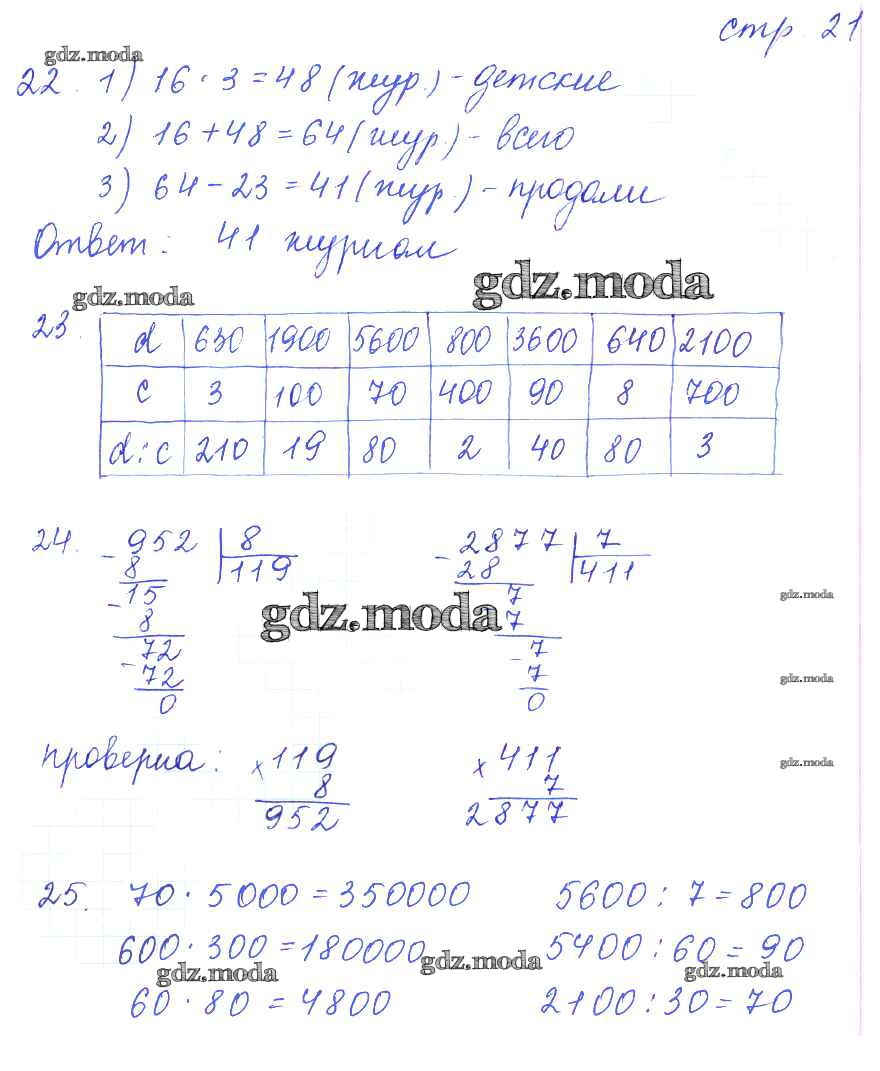 стр. 21
gdz.moda
22. 1) 16 · 3 = 48 (жур.) - детские
2) 16 + 48 = 64 (жур.) - всего
3) 64 - 23 = 41 (жур.) - продали
Ответ: 41 журнал
gdz.moda gdz.moda
23.
d 630 1900 5600 800 3600 640 2100
c 3 100 70 400 90 8 700
d : c 210 19 80 2 40 80 3
24. - 952 | 8 - 2877 | 7
8 119 28 411
- 15 7
gdz.moda
8 gdz.moda 7
72 - 7
- 72 7
gdz.moda
0 0
проверка: x 119 x 411
gdz.moda
8 7
952 2877
25. 70 · 5000 = 350000 5600 : 7 = 800
600 · 300 = 180000 5400 : 60 = 90
gdz.moda gdz.moda gdz.moda
60 · 80 = 4800 2100 : 30 = 70